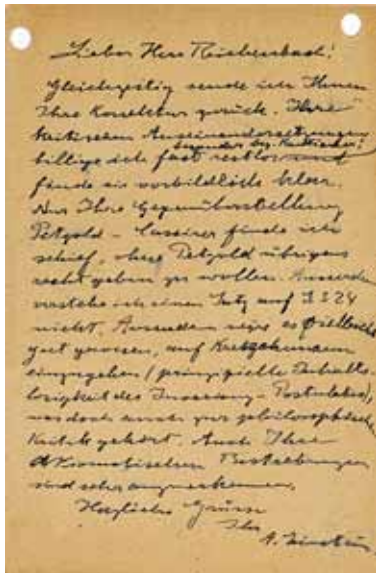 Lieber Herr Reichenbach!
Gleichzeitig sende ich Ihnen
Ihre Korrektur zurück. Ihre
kritischen Auseinandersetzungen
besonders bzg.
billige ich fast restlos und
finde sie vorbildlich klar.
Nur Ihre Gegenüberstellung
Petzold - Cassirer finde ich
schief, ohne Petzold übrigens
recht geben zu wollen. Ausserdem
verstehe ich einen Satz auf S 324
nicht. Ausserdem wäre es vielleicht
gut gewesen, auf Kretschmann
einzugehen (prinzipielle Inhalts-
losigkeit des Invarianz-Postulates),
was doch auch zur philosophischen
Kritik gehört. Auch Ihre
axiomatischen Bestrebungen
sind sehr anzuerkennen.
Herzliche Grüsse
Ihr
A. Einstein.